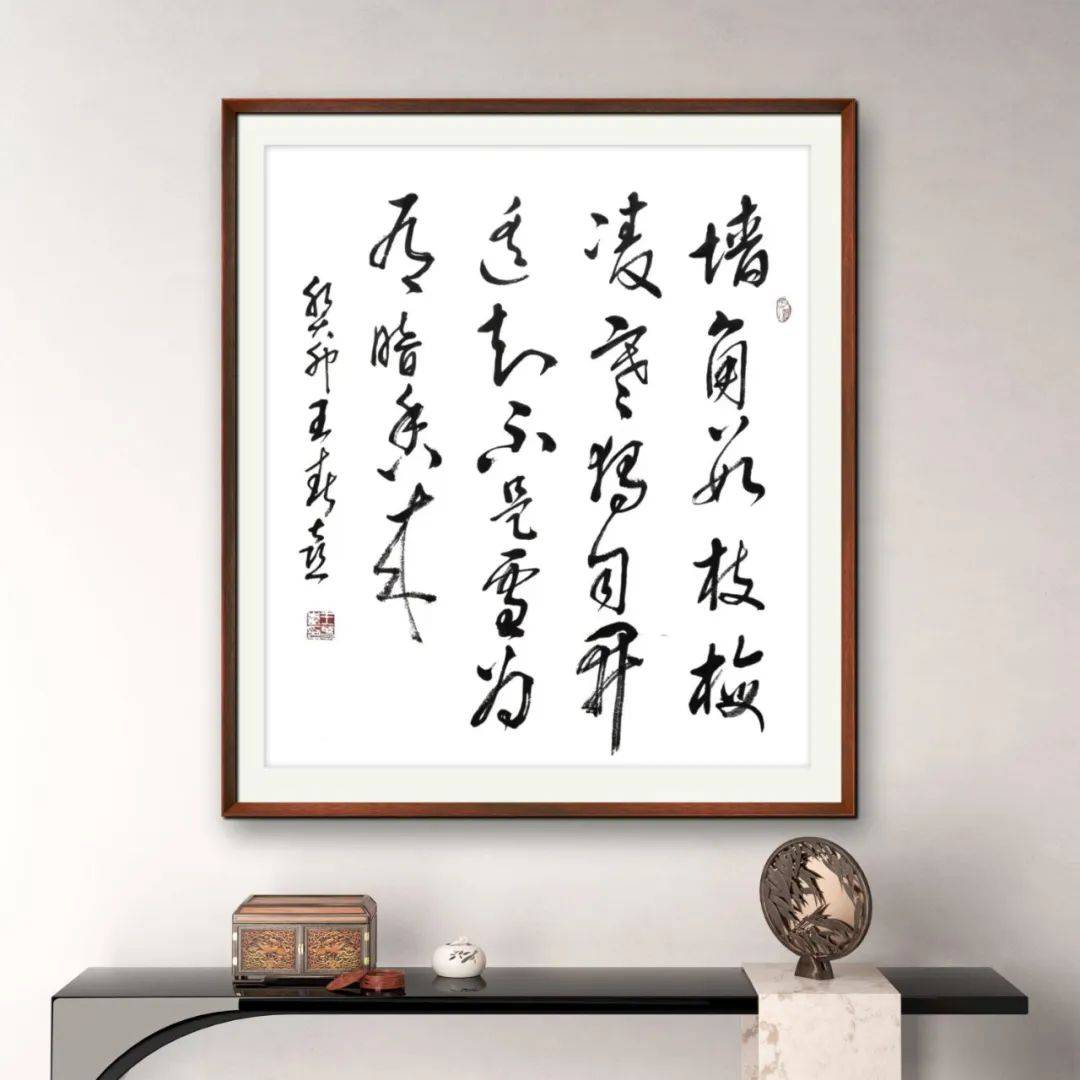 墙角数枝梅
凌寒獨自開
遥知不是雪为
有暗香来
癸卯王春